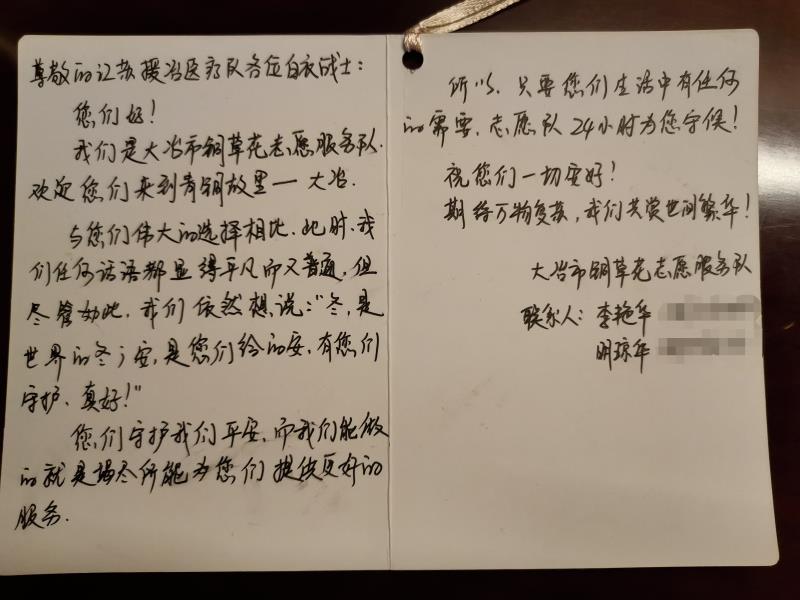 尊敬的江苏援冶医疗队各位白衣战士：
您们好！
我们是大冶市铜草花志愿服务队.
欢迎您们来到青铜故里一大冶.
与您们伟大的选择相比.此时.我
们任何话语都显得平凡而又普通，但
尽管如此，我们依然想说："冬，是
世界的冬；安，是您们给的安，有您们
守护、真好！"
您们守护我们平安，而我们能做
的就是竭尽所能为您们提供更好的
服务.
所以，只要您们生活中有任何
的需要，志愿队24小时为您守候！
祝您们一切安好！
期待万物复苏，我们共赏世间繁华！
大冶市铜草花志愿服务队
联系人：李艳华
明琼年